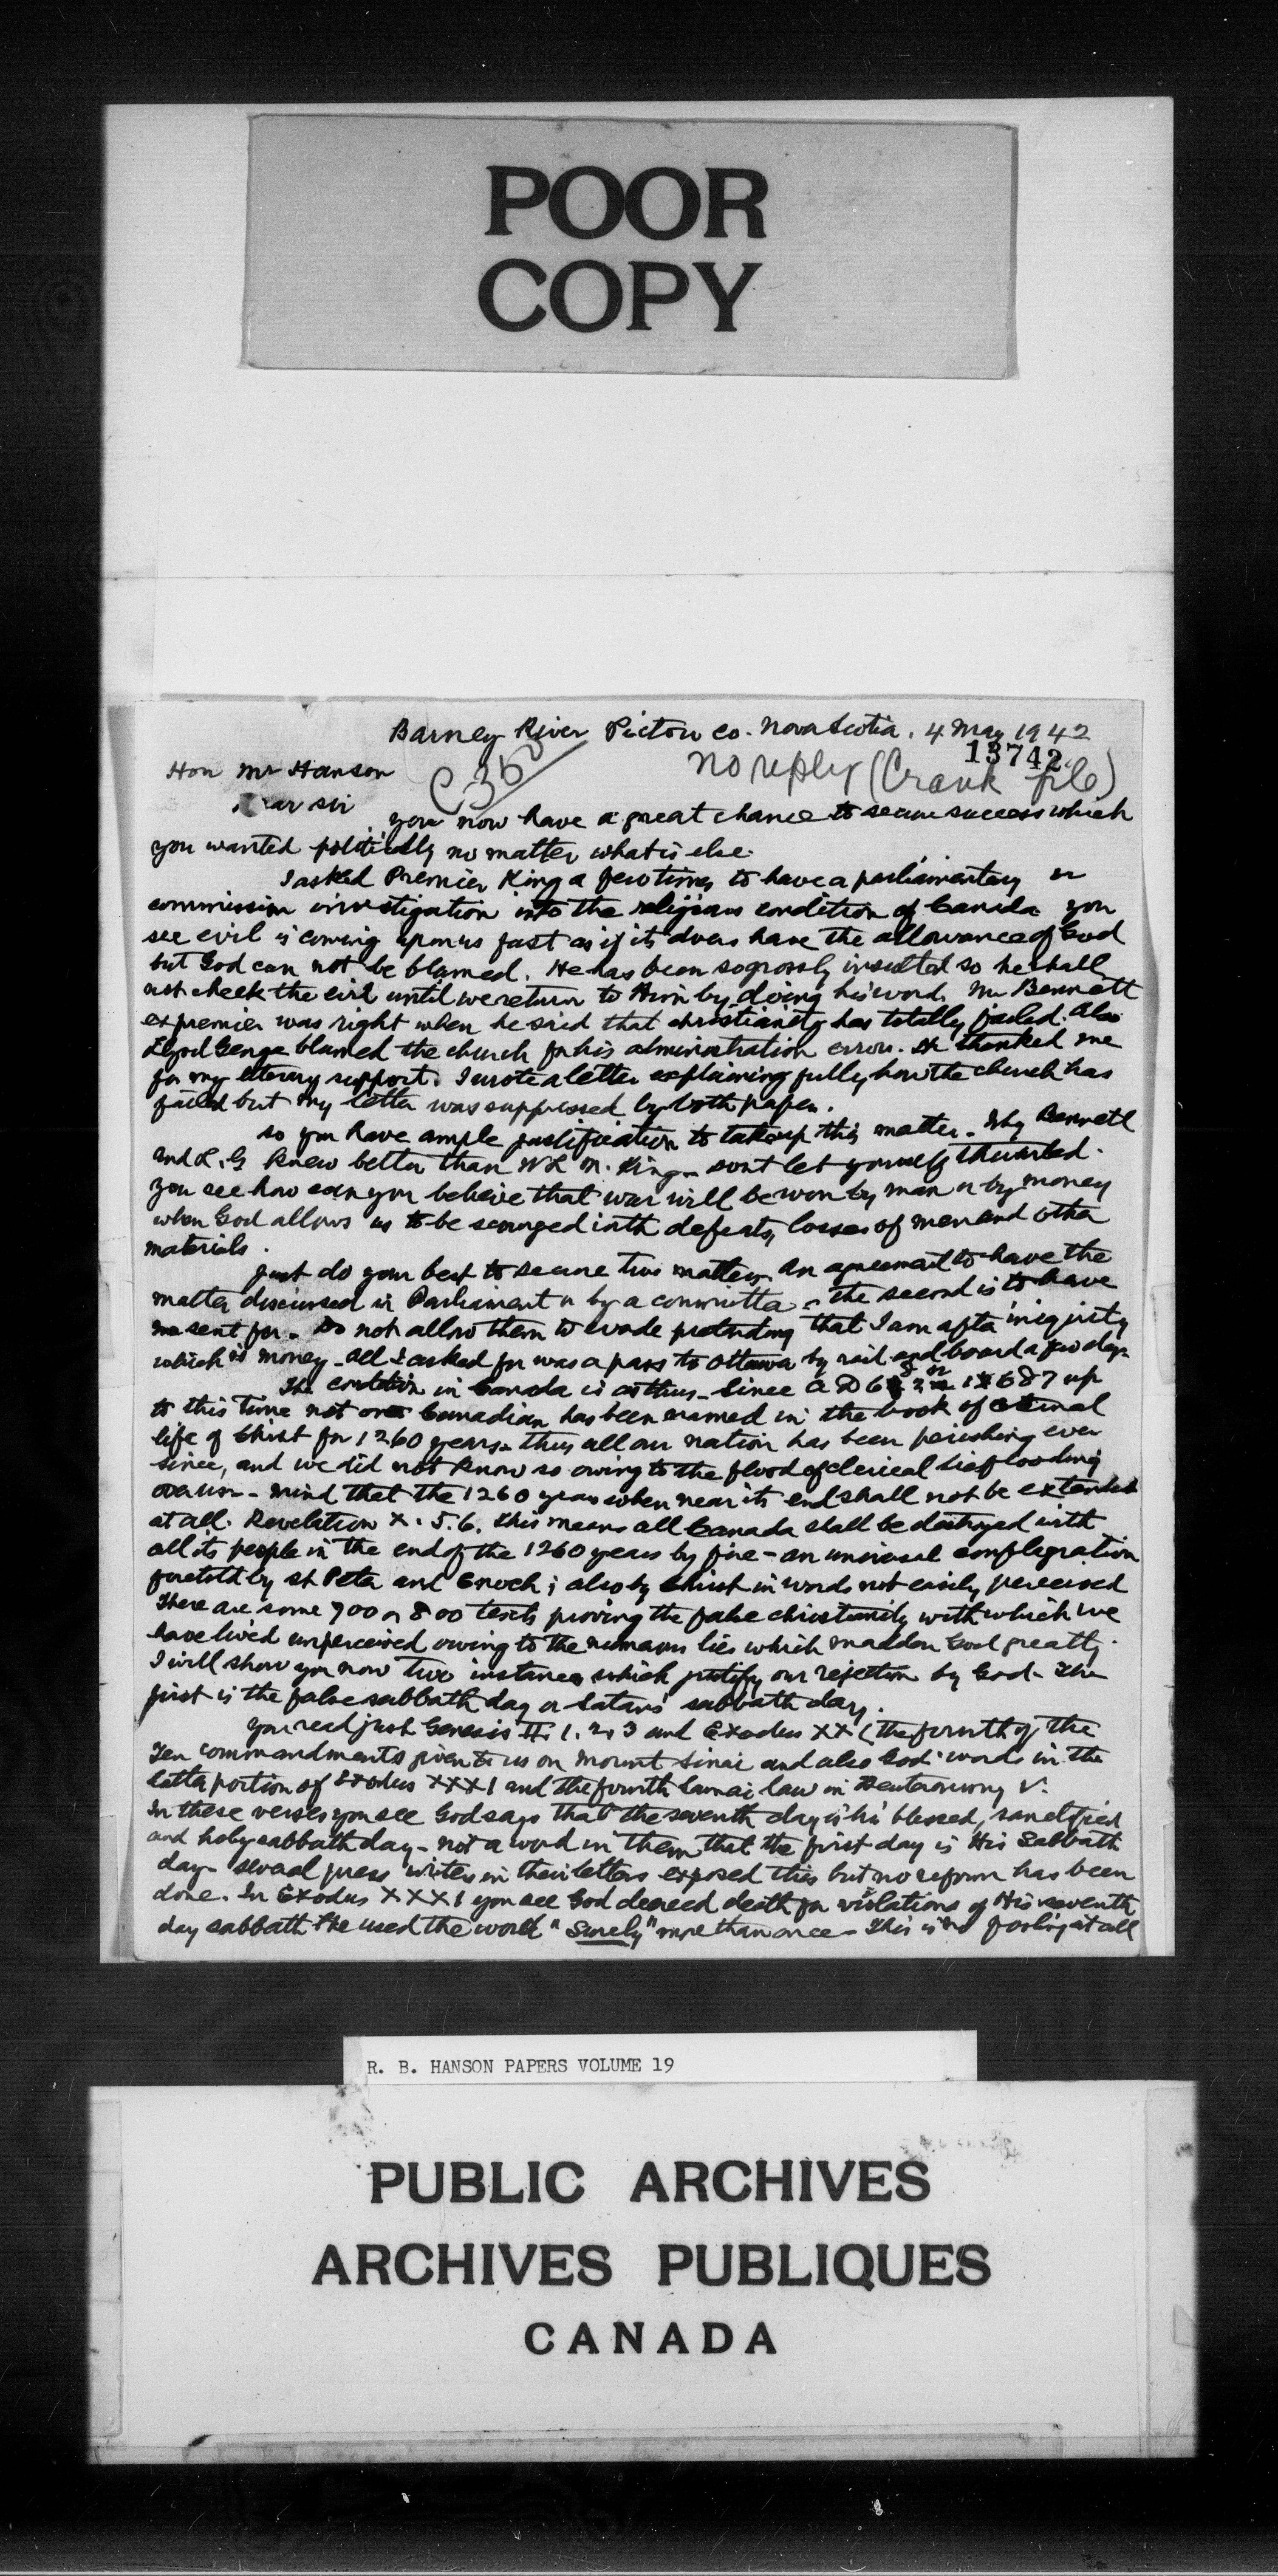 POOR
COPY
Barney River Pictou co. Nova Scotia. 4 May 1942
13742
Hon Mr Hanson
C 350
no reply (Crank file)
Dear sir
you now have a great chance to secure success which
you wanted politically no matter what is else.
I asked Premier King a few times to have a parliamentary or
commission investigation into the religious condition of Canada you
see evil is coming upon us fast as if its doers have the allowance of God
but God can not be blamed. He has been so grossly insulted so he shall
not check the evil until we return to Him by doing his word. Mr Bennett
expremier was right when he said that christianity has totally failed. Also
Lloyd George blamed the church for his administration errors. He thanked me
for my literary support. I wrote a letter explaining fully how the church has
failed but my letter was suppressed by both papers.
So you have ample justification to take up this matter. Why Bennett
and L. G knew better than W L M. King - dont let yourself thwarted.
You see how can you believe that war will be won by man or by money
when God allows us to be scourged with defeats, losses of men and other
materials.
Just do your best to secure two matters. An agreement to have the
matter discussed in Parliament or by a committee - the second is to have
me sent for. Do not allow them to evade pretending that I am after iniquity
which is money - all I asked for was a pass to Ottawa by rail and board a few days.
The condition in Canada is as thus - Since A D 687 up
to this time not one Canadian has been named in the book of eternal
life of Christ for 1260 years - thus all our nation has been perishing ever
since, and we did not know so owing to the flood of clerical lies flooding
over us - mind that the 1260 years when near its end shall not be extended
at all. Revelation X. 5.6. This means all Canada shall be destroyed with
all its people in the end of the 1260 years by fire - an universal conflagration
foretold by St Peter and Enoch; also by Christ in words not easily perceived
There are some 700 or 800 texts proving the false christianity with which we
have lived unperceived owing to the numerous lies which madden God greatly.
I will show you now two instances which justify our rejection by God - The
first is the false sabbath day or Satans' sabbath day.
You read just Genesis II. 1. 2. 3 and Exodus XX (the fourth of the
Ten commandments given to us on Mount Sinai and also God' words in the
latter portion of Exodus XXXI and the fourth Sanai law in Deuteronomy V.
In these verses you see God says that the seventh day is his blessed, sanctified
and holy sabbath day - not a word in them that the first day is His Sabbath
day - several press writers in their letters exposed this but no reform has been
done. In Exodus XXXI you see God decreed death for violations of His seventh
day sabbath He used the world "Surely" more than once - This is no fooling at all
R. B. HANSON PAPERS VOLUME 19
PUBLIC ARCHIVES
ARCHIVES PUBLIQUES
CANADA